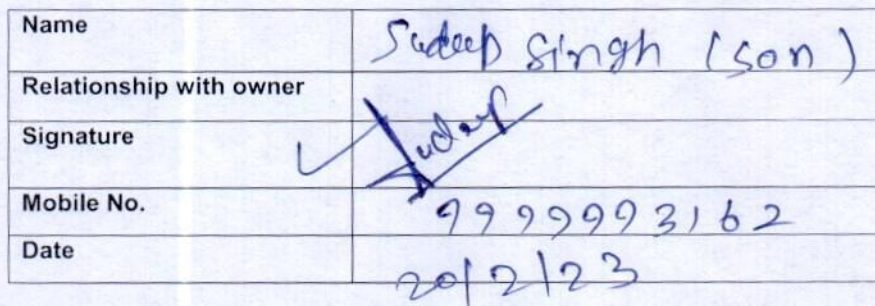 Name Sudeep Singh (son)
Relationship with owner
Signature Sudeep
Mobile No. 9999993162
Date 20/2/23